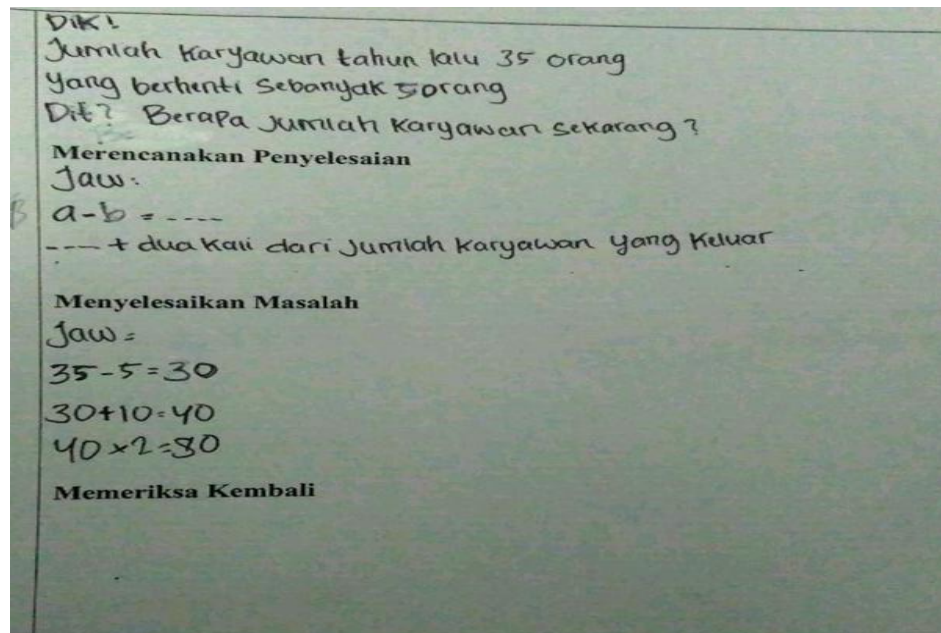 Dik!
Jumlah Karyawan tahun lalu 35 orang
Yang berhenti Sebanyak 5 orang
Dit? Berapa Jumlah Karyawan Sekarang?
Merencanakan Penyelesaian
Jaw:
a-b = ----
---- + dua kali dari Jumlah Karyawan yang Keluar
Menyelesaikan Masalah
Jaw =
35-5=30
30+10=40
40×2=80
Memeriksa Kembali